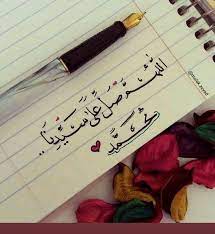 اللهم صَلِّ عَلَى سَيِّدِنَا..
مُحَمَّد